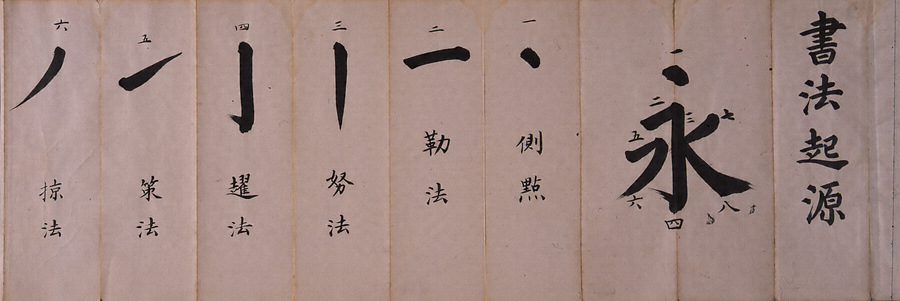 書法起源
永
一
二
三
四
五
六
七
八
一
側點
二
勒法
三
努法
四
趯法
五
策法
六
掠法